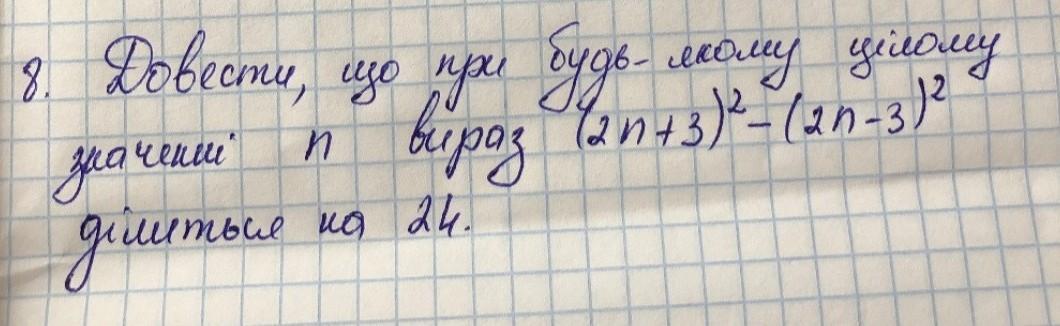 8. Довести, що при будь-якому цілому
значенні n вираз (2n+3)² - (2n-3)²
ділиться на 24.